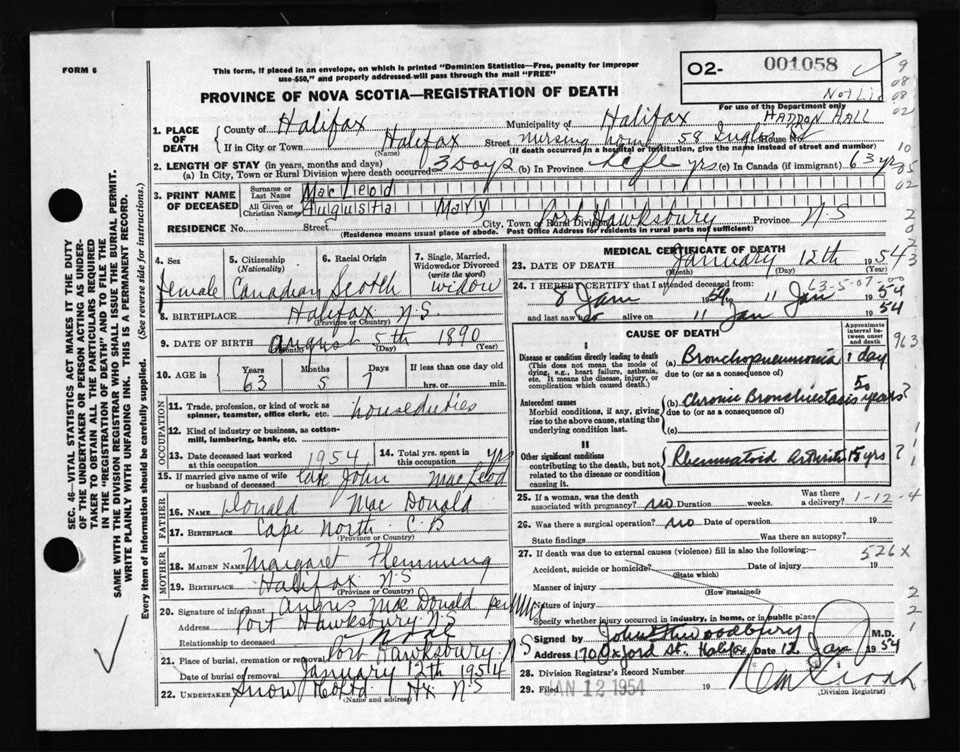 FORM 6
This form, if placed in an envelope, on which is printed "Dominion Statistics—Free, penalty for improper
use-$50," and properly addressed will pass through the mail "FREE"
O2- 001058
Not Lid
For use of the Department only
PROVINCE OF NOVA SCOTIA—REGISTRATION OF DEATH
HADDON HALL
1. PLACE OF DEATH
County of Halifax Municipality of Halifax
If in City or Town Halifax (Name) Street Nursing home 58 Inglis House No.
(If death occurred in a hospital or institution, give the name instead of street and number)
2. LENGTH OF STAY (in years, months and days)
(a) In City, Town or Rural Division where death occurred 3 Days (b) In Province Life yrs (c) In Canada (if immigrant) 63 yrs
3. PRINT NAME OF DECEASED
Surname or Last Name MacLeod
All Given or Christian Names Augusta Mary
RESIDENCE No. Street City, Town or Rural Division Port Hawksbury Province N.S
(Residence means usual place of abode. Post Office Address for residents in rural parts not sufficient)
4. Sex female
5. Citizenship (Nationality) Canadian
6. Racial Origin Scotch
7. Single, Married, Widowed or Divorced (write the word) widow
8. BIRTHPLACE Halifax N.S
(Province or Country)
9. DATE OF BIRTH August 5th 1890
(Month) (Day) (Year)
10. AGE in Years 63 Months 5 Days 7 If less than one day old
hrs. or min.
OCCUPATION
11. Trade, profession, or kind of work as spinner, teamster, office clerk, etc. houseduties
12. Kind of industry or business, as cotton-mill, lumbering, bank, etc.
13. Date deceased last worked at this occupation 1954
14. Total yrs. spent in this occupation yrs
15. If married give name of wife or husband of deceased Late John MacLeod
FATHER
16. Name Donald MacDonald
17. Birthplace Cape North C.B
(Province or Country)
MOTHER
18. Maiden Name Margaret Flemming
19. Birthplace Halifax N.S
(Province or Country)
20. Signature of informant Angus MacDonald per
Address Port Hawksbury N.S
Relationship to deceased
21. Place of burial, cremation or removal Port Hawksbury N S
Date of burial or removal January 12th 1954
22. Undertaker Snow Hx. N.S
(Name and address)
MEDICAL CERTIFICATE OF DEATH
23. DATE OF DEATH January 12th 1954
(Month) (Day)
24. I HEREBY CERTIFY that I attended deceased from
8 Jan 1954 to 11 Jan 1954
and last saw h alive on 11 Jan 1954
CAUSE OF DEATH
Approximate interval between onset and death
I
Disease or condition directly leading to death
(This does not mean the mode of dying, e.g., heart failure, asthenia, etc. It means the disease, injury, or complication which caused death.)
(a) Bronchopneumonia 1 day
due to (or as a consequence of)
Antecedent causes
Morbid conditions, if any, giving rise to the above cause, stating the underlying condition last.
(b) Chronic Bronchiectasis 50 years?
due to (or as a consequence of)
(c)
II
Other significant conditions
contributing to the death, but not related to the disease or condition causing it.
Rheumatoid Arthritis 15 yrs?
25. If a woman, was the death associated with pregnancy? no Duration weeks Was there a delivery? 1-12-4
26. Was there a surgical operation? no Date of operation 19
State findings Was there an autopsy?
27. If death was due to external causes (violence) fill in also the following:— 526X
Accident, suicide or homicide? Date of injury 19
(State which)
Manner of injury
(How sustained)
Nature of injury
Specify whether injury occurred in industry, in home, or in public place
Signed by M.D.
Address 170 Oxford St. Halifax Date 12 Jan 1954
28. Division Registrar's Record Number
29. Filed JAN 12 1954 19
(Division Registrar)
SEC. 46—VITAL STATISTICS ACT MAKES IT THE DUTY
OF THE UNDERTAKER OR PERSON ACTING AS UNDER-
TAKER TO OBTAIN ALL THE PARTICULARS REQUIRED
IN THE "REGISTRATION OF DEATH" AND TO FILE THE
SAME WITH THE DIVISION REGISTRAR WHO SHALL ISSUE THE BURIAL PERMIT.
WRITE PLAINLY WITH UNFADING INK. THIS IS A PERMANENT RECORD.
Every item of information should be carefully supplied. (See reverse side for instructions.)